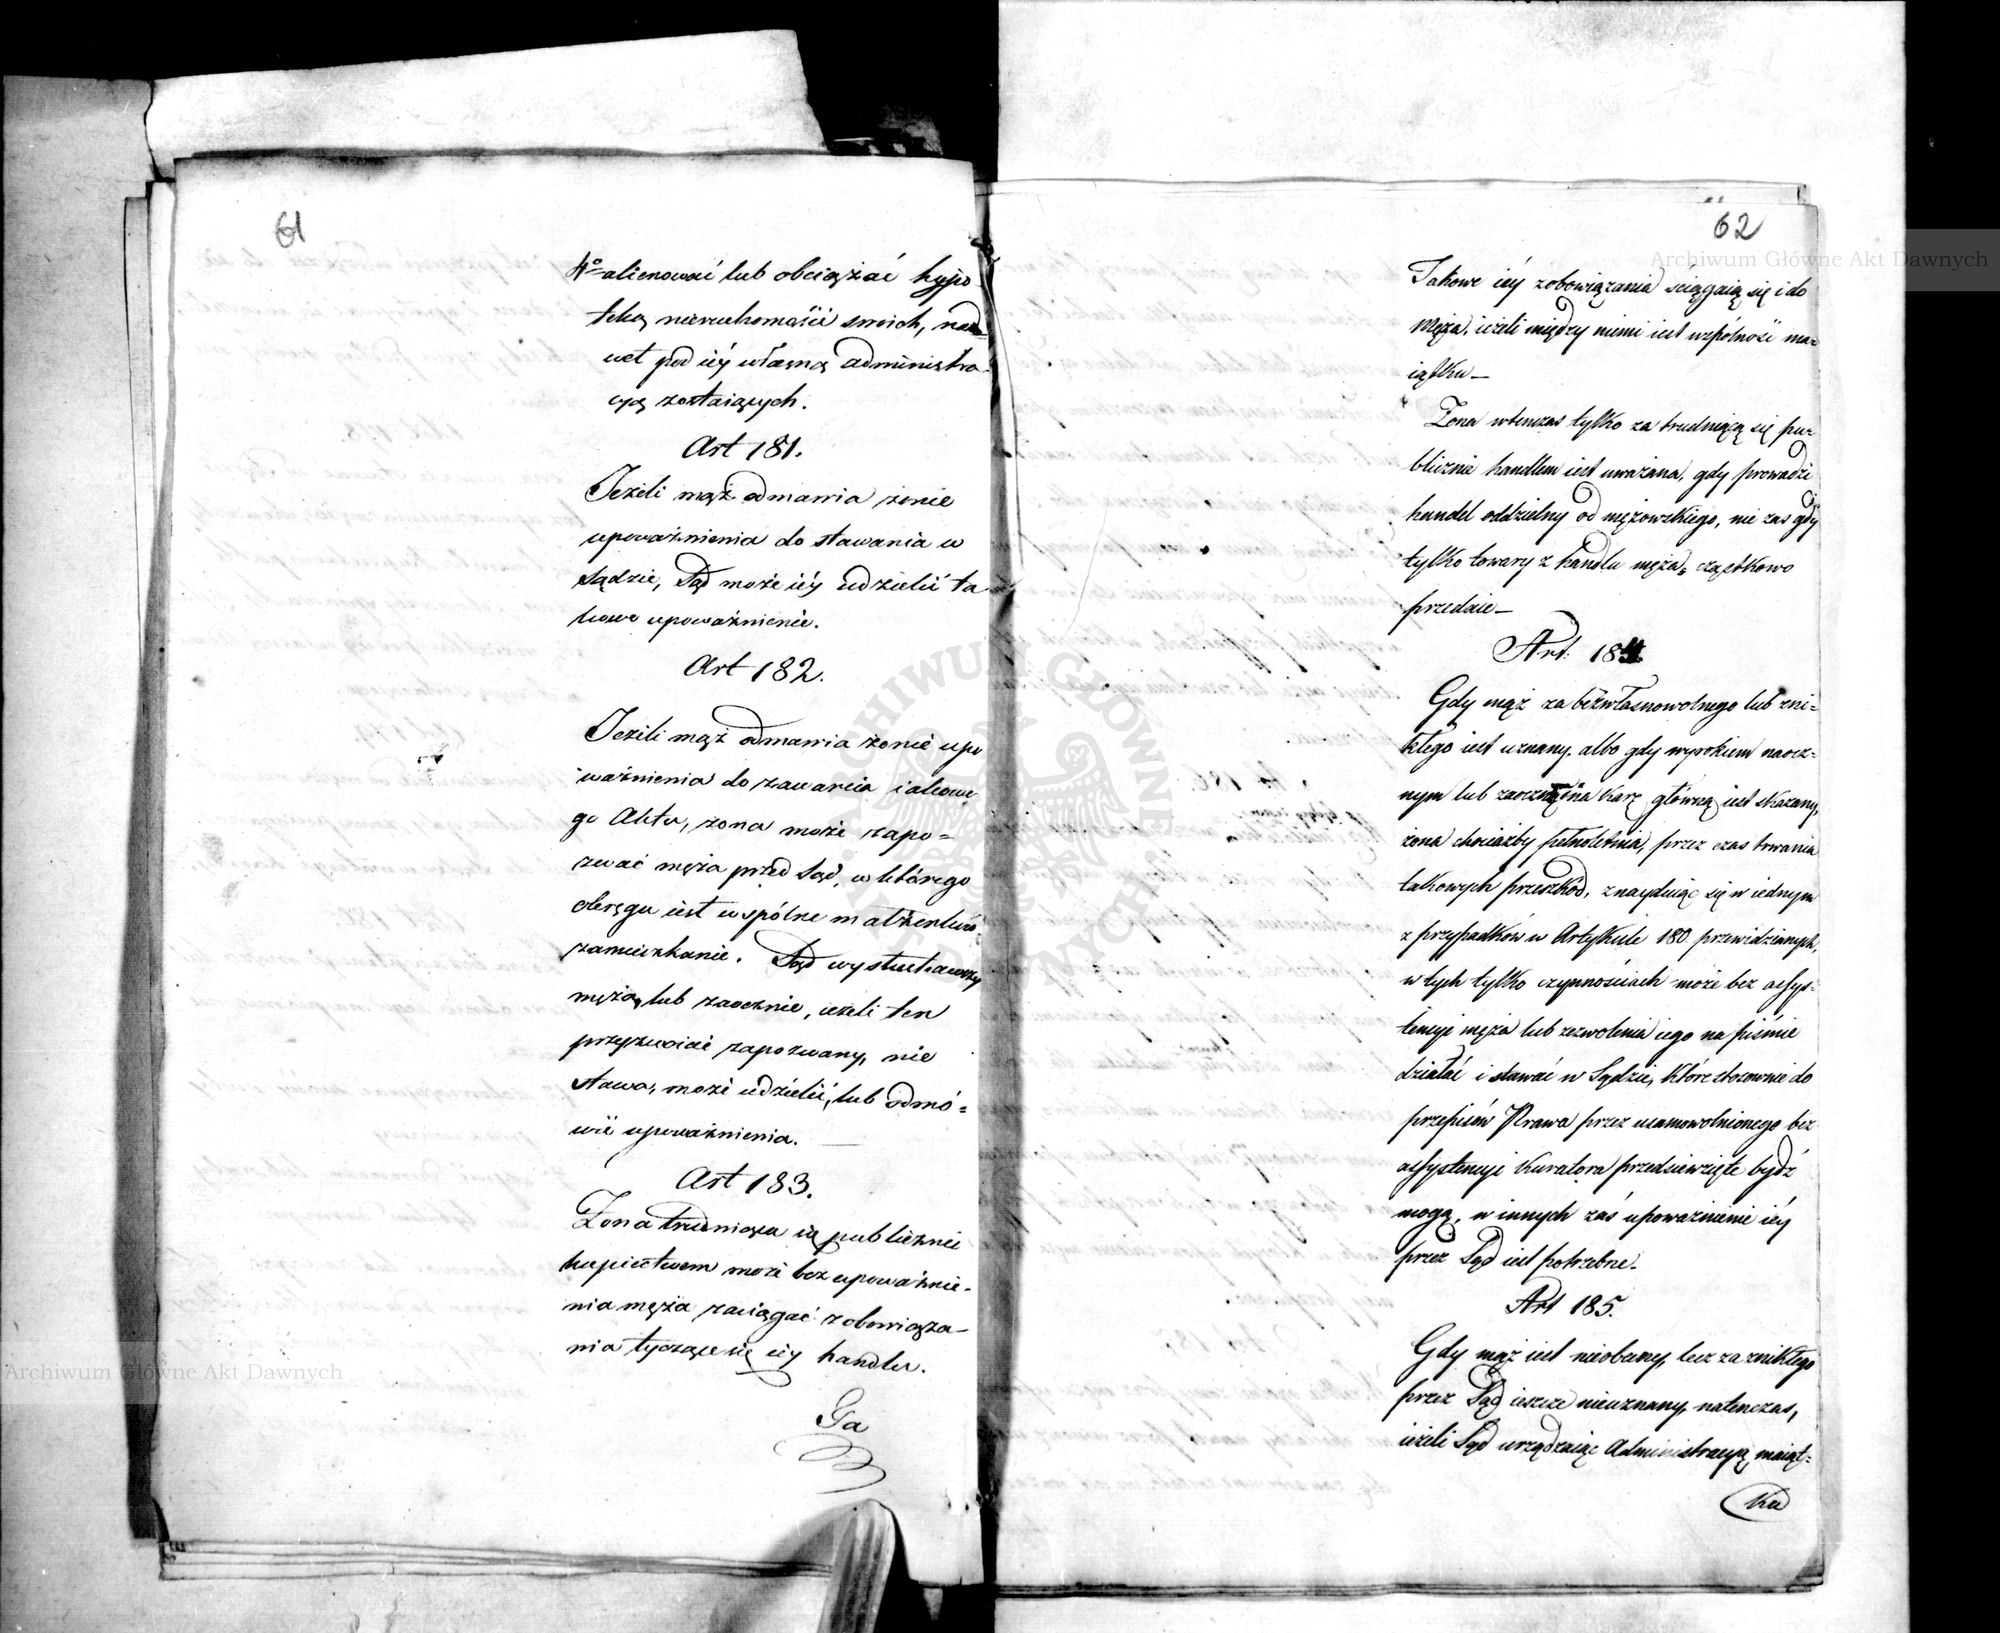 61
4o alienować lub obciążać hypo
teką nieruchomości swoich, na
wet pod iéy własną administra
cyą zostaiących.
Art 181.
Jeżeli mąż odmawia żonie
upoważnienia do stawania w
Sądzie, Sąd może iéy udzielić ta
kowe upoważnienie.
Art 182.
Jeżeli mąż odmawia żonie upo
ważnienia do zawarcia iakowe
go Aktu, żona może zapo=
zwać męża przed Sąd, w którego
okręgu iest wspólne małżeńskie
zamieszkanie. Sąd wysłuchawszy
męża, lub zaocznie, ieżeli ten
przyzwoicie zapozwany, nie
stawa, może udzielić, lub odmó=
wić upoważnienia.
Art 183.
Żona trudniąca się publicznie
kupiectwem może bez upoważnie-
nia męża zaciągać zobowiąza-
nia tyczące się iéy handlu.
Ta
62
Takowe iéy zobowiązania ściągaią się i do
Męża, ieżeli między niemi iest wspólność ma=
iątku—
Żona wtenczas tylko za trudniącą się pu=
blicznie handlem iest uważana, gdy prowadzi
handel oddzielny od mężowskiego, nie zaś gdy
tylko towary z handlu męża, cząstkowo
przedaie—
Art: 184.
Gdy mąż za bezwłasnowolnego lub zni=
kłego iest uznany, albo gdy wyrokiem naocz=
nym lub zaocznym na karę główną iest skazany,
żona chociażby pełnoletnia, przez czas trwania
takowych przeszkód, znayduiąc się w iednym
z przypadków w Artykule 180 przewidzianych,
w tych tylko czynnościach może bez assys=
tencyi męża lub zezwolenia iego na piśmie
działać i stawać w Sądzie, które stosownie do
przepisów Prawa przez usamowolnionego bez
assystencyi Kuratora przedsiewzięte bydź
mogą, w innych zaś upoważnienie iéy
przez Sąd iest potrzebne.
Art 185.
Gdy mąż iest nieobecny, lecz za znikłego
przez Sąd ieszcze nieuznany, natenczas,
ieżeli Sąd urządzaiąc Administracyą maiąt=
ku
Archiwum Główne Akt Dawnych
Archiwum Główne Akt Dawnych